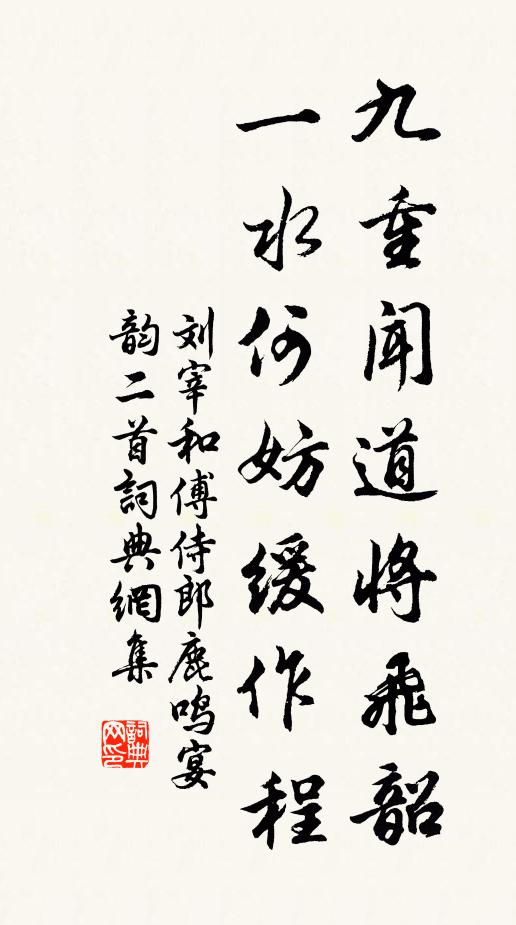 九重闻道将飛韶
一水何妨缓作程
刘宰和傅侍郎鹿鸣宴
韵二首詞典網集
詞典
网印